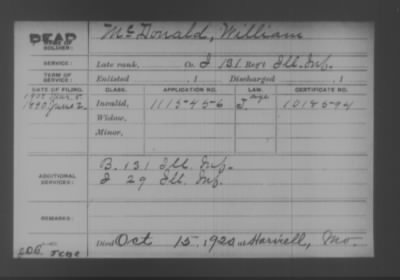 DEAD McDonald, William
NAME OF SOLDIER:
SERVICE: Late rank, Co. I 131 Reg't Ill. Inf.
TERM OF SERVICE: Enlisted , 1 Discharged , 1
DATE OF FILING. CLASS. APPLICATION NO. LAW. CERTIFICATE NO.
1890 June 2 Invalid, 1115456 J. 1018594
Widow,
Minor,
B. 131 Ill. Inf.
ADDITIONAL SERVICES: I 29 Ill. Inf.
REMARKS:
Died Oct 15, 1920 at Mo.